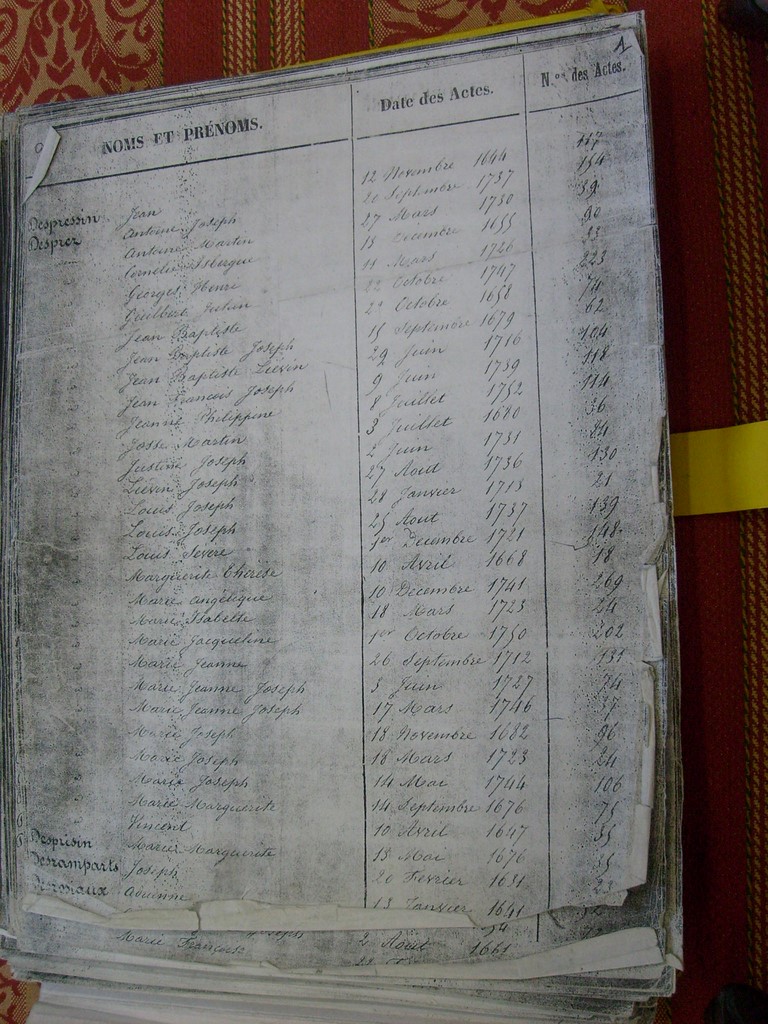 1
NOMS ET PRÉNOMS. Date des Actes. N.os des Actes.
Despressin Jean 12 Novembre 1644 117
Desprez Antoine Joseph 20 Septembre 1737 154
Antoine Martin 27 Mars 1730 39
Cornelie Isbergue 13 Decembre 1655 90
Georges Henri 11 Mars 1726 23
Guilbert Julien 22 Octobre 1747 223
Jean Baptiste 29 Octobre 1658 74
Jean Baptiste Joseph 15 Septembre 1679 62
Jean Baptiste Liévin 29 Juin 1716 104
Jean Francois Joseph 9 Juin 1739 118
Jeanne Philippine 8 Juillet 1752 114
Josse Martin 3 Juillet 1680 36
Justine Joseph 2 Juin 1731 84
Liévin Joseph 27 Aout 1736 130
Louis Joseph 28 Janvier 1713 21
Louis Joseph 25 Aout 1737 139
Louis Sévère 1er Decembre 1721 148
Marguerite Thérèse 10 Avril 1668 18
Marie Angélique 10 Décembre 1741 269
Marie Isabelle 18 Mars 1723 24
Marie Jacqueline 1er Octobre 1750 202
Marie Jeanne 26 Septembre 1712 131
Marie Jeanne Joseph 3 Juin 1727 74
Marie Jeanne Joseph 17 Mars 1746 37
Marie Joseph 18 Novembre 1682 96
Marie Joseph 18 Mars 1723 24
Marie Joseph 14 Mai 1744 106
Marie Marguerite 14 Septembre 1676 75
Vincent 10 Avril 1647 35
Despresin Marie Marguerite 15 Mai 1676 35
Desramparts Joseph 20 Fevrier 1631 23
Adrienne 13 Janvier 1641 32
Joseph
Marie Françoise 2 Août 1661